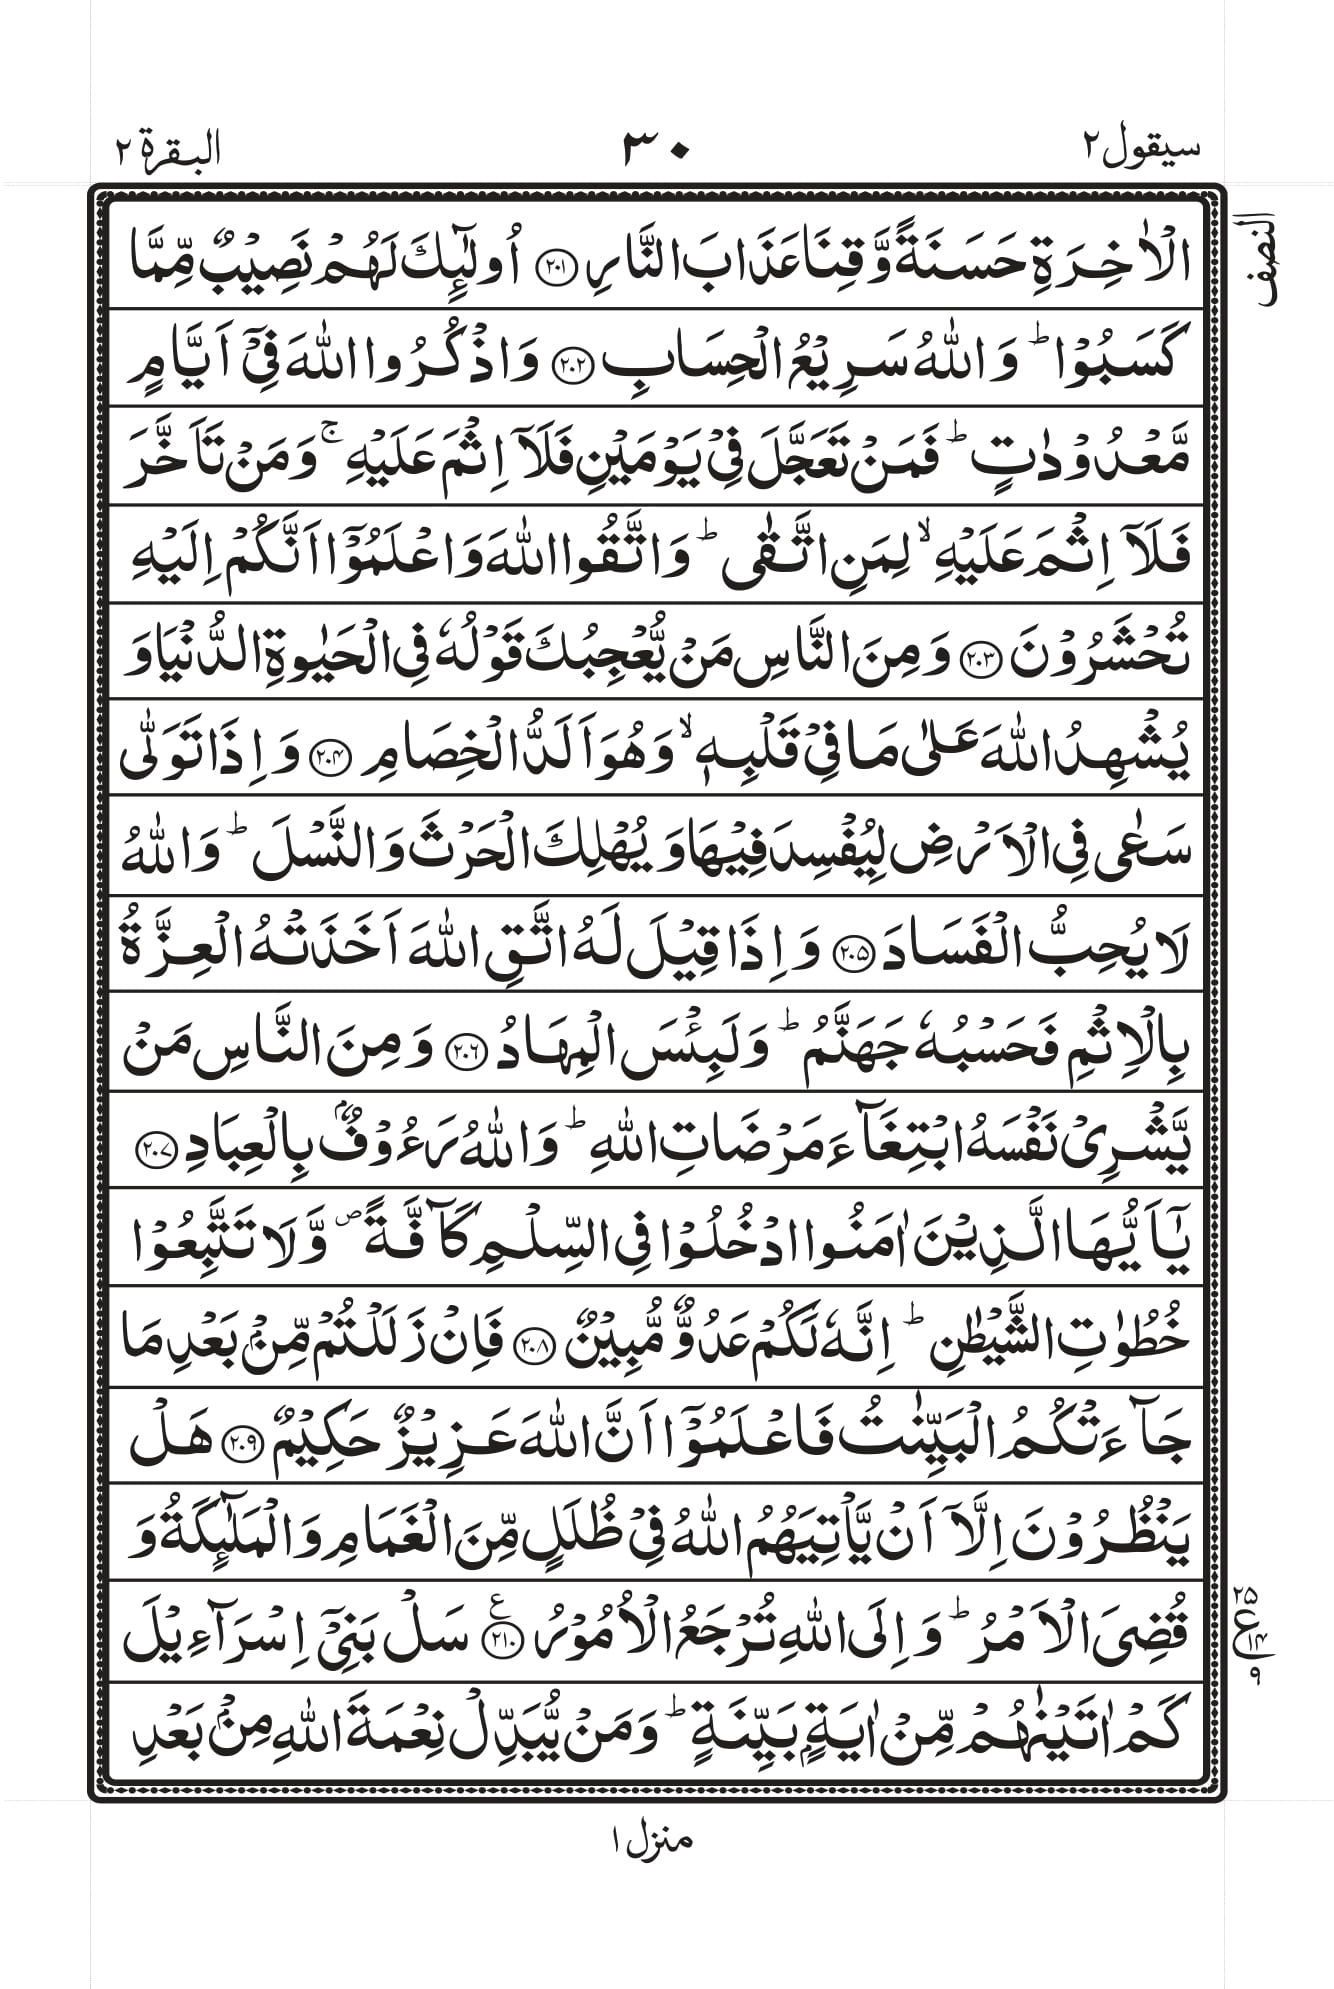 سيقول ٢
٣٠
البقرة ٢
النصف
الۡاٰخِرَةِ حَسَنَةً وَّقِنَا عَذَابَ النَّارِ ﴿۲۰۱﴾ اُولٰٓئِكَ لَهُمۡ نَصِيۡبٌ مِّمَّا
كَسَبُوۡا ؕ وَاللّٰهُ سَرِيۡعُ الۡحِسَابِ ﴿۲۰۲﴾ وَاذۡكُرُوا اللّٰهَ فِىۡٓ اَيَّامٍ
مَّعۡدُوۡدٰتٍ ؕ فَمَنۡ تَعَجَّلَ فِىۡ يَوۡمَيۡنِ فَلَاۤ اِثۡمَ عَلَيۡهِ ۚ وَمَنۡ تَاَخَّرَ
فَلَاۤ اِثۡمَ عَلَيۡهِ ۙ لِمَنِ اتَّقٰى ؕ وَاتَّقُوا اللّٰهَ وَاعۡلَمُوۡٓا اَنَّكُمۡ اِلَيۡهِ
تُحۡشَرُوۡنَ ﴿۲۰۳﴾ وَمِنَ النَّاسِ مَنۡ يُّعۡجِبُكَ قَوۡلُهٗ فِى الۡحَيٰوةِ الدُّنۡيَا وَ
يُشۡهِدُ اللّٰهَ عَلٰى مَا فِىۡ قَلۡبِهٖ ۙ وَهُوَ اَلَدُّ الۡخِصَامِ ﴿۲۰۴﴾ وَاِذَا تَوَلّٰى
سَعٰى فِى الۡاَرۡضِ لِيُفۡسِدَ فِيۡهَا وَيُهۡلِكَ الۡحَرۡثَ وَالنَّسۡلَ ؕ وَاللّٰهُ
لَا يُحِبُّ الۡفَسَادَ ﴿۲۰۵﴾ وَاِذَا قِيۡلَ لَهُ اتَّقِ اللّٰهَ اَخَذَتۡهُ الۡعِزَّةُ
بِالۡاِثۡمِ فَحَسۡبُهٗ جَهَنَّمُ ؕ وَلَبِئۡسَ الۡمِهَادُ ﴿۲۰۶﴾ وَمِنَ النَّاسِ مَنۡ
يَّشۡرِىۡ نَفۡسَهُ ابۡتِغَآءَ مَرۡضَاتِ اللّٰهِ ؕ وَاللّٰهُ رَءُوۡفٌۢ بِالۡعِبَادِ ﴿۲۰۷﴾
يٰٓاَيُّهَا الَّذِيۡنَ اٰمَنُوا ادۡخُلُوۡا فِى السِّلۡمِ كَآفَّةً ص وَّلَا تَتَّبِعُوۡا
خُطُوٰتِ الشَّيۡطٰنِ ؕ اِنَّهٗ لَكُمۡ عَدُوٌّ مُّبِيۡنٌ ﴿۲۰۸﴾ فَاِنۡ زَلَلۡتُمۡ مِّنۡۢ بَعۡدِ مَا
جَآءَتۡكُمُ الۡبَيِّنٰتُ فَاعۡلَمُوۡٓا اَنَّ اللّٰهَ عَزِيۡزٌ حَكِيۡمٌ ﴿۲۰۹﴾ هَلۡ
يَنۡظُرُوۡنَ اِلَّاۤ اَنۡ يَّاۡتِيَهُمُ اللّٰهُ فِىۡ ظُلَلٍ مِّنَ الۡغَمَامِ وَالۡمَلٰٓئِكَةُ وَ
قُضِىَ الۡاَمۡرُ ؕ وَاِلَى اللّٰهِ تُرۡجَعُ الۡاُمُوۡرُ ﴿۲۱۰﴾ ع سَلۡ بَنِىۡٓ اِسۡرَآءِيۡلَ
۲۵
ع ۱۴
۹
كَمۡ اٰتَيۡنٰهُمۡ مِّنۡ اٰيَةٍۢ بَيِّنَةٍ ؕ وَمَنۡ يُّبَدِّلۡ نِعۡمَةَ اللّٰهِ مِنۡۢ بَعۡدِ
منزل ۱